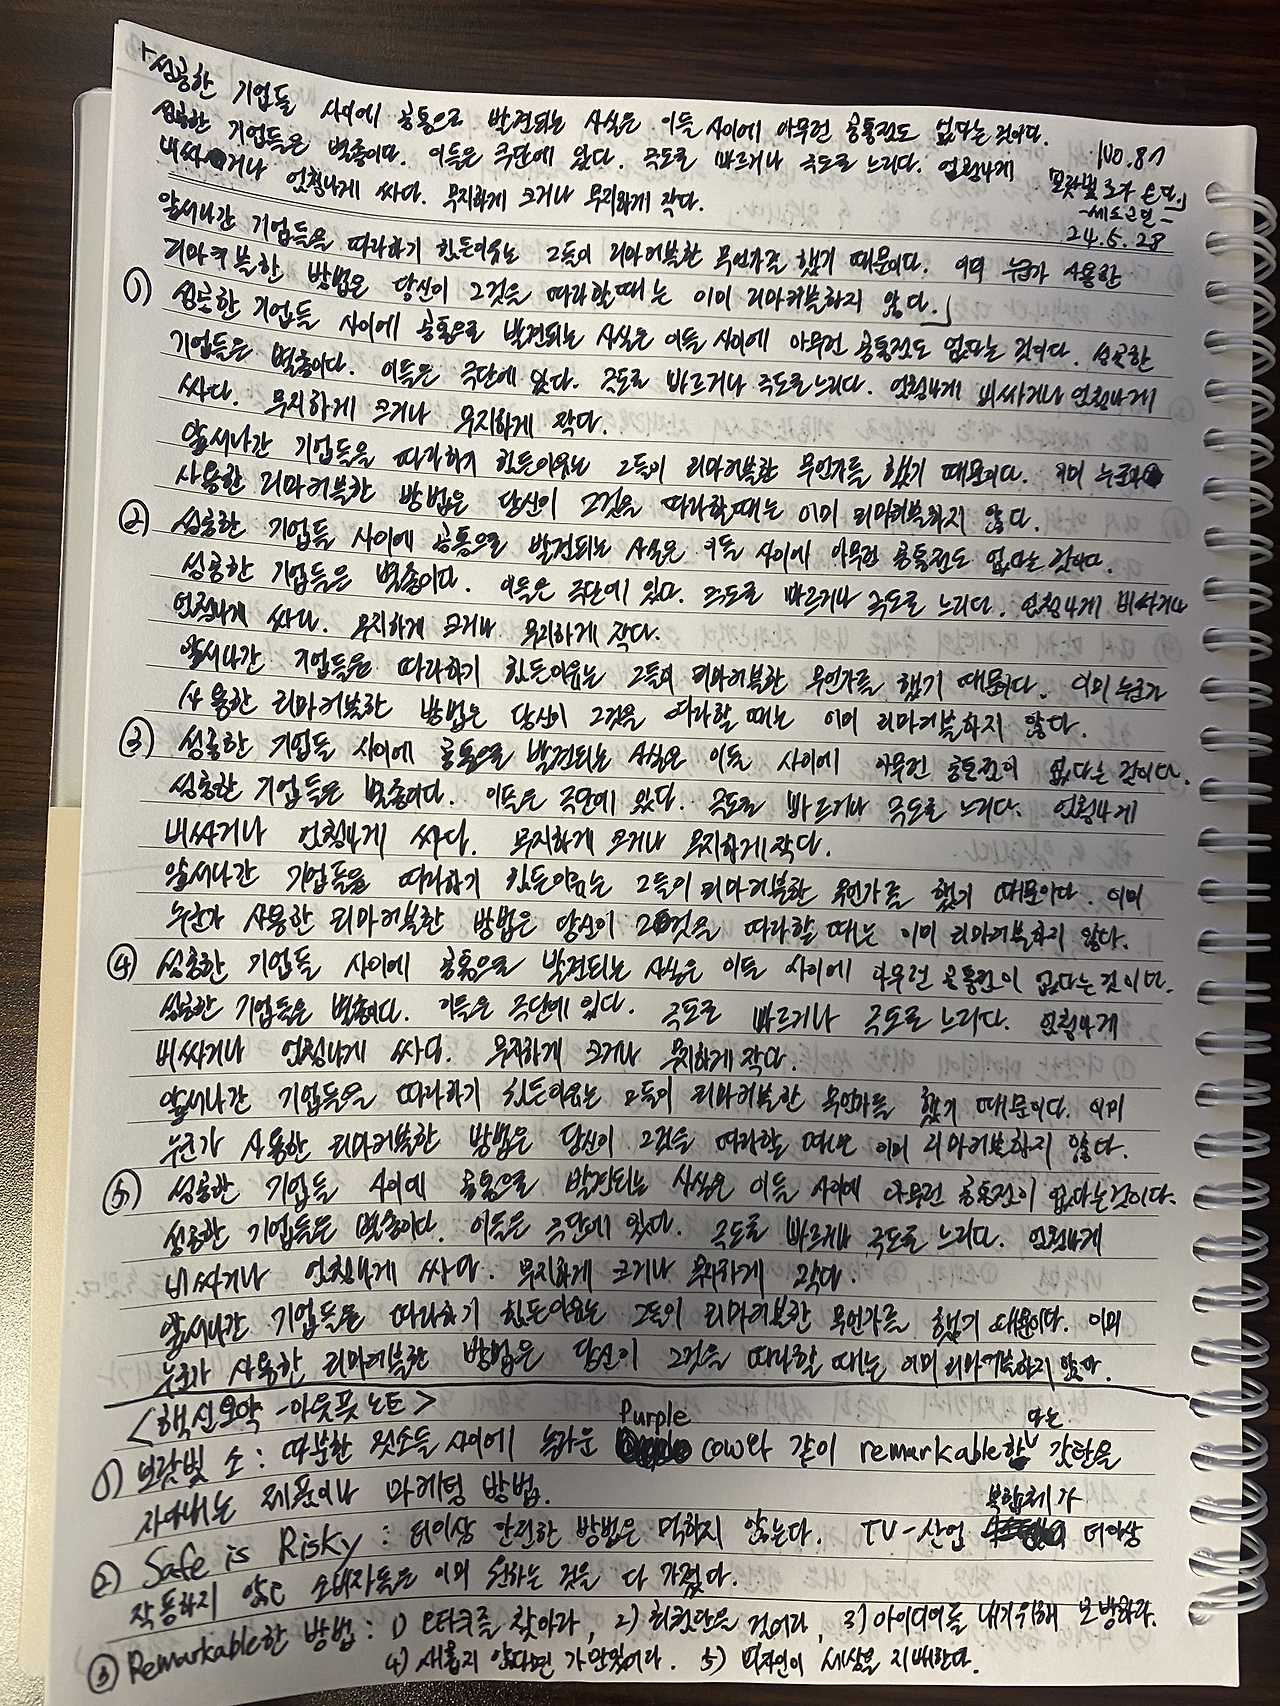 + 성공한 기업들 사이에 공통으로 발견되는 사실은 이들 사이에 아무런 공통점도 없다는 것이다.
성공한 기업들은 별종이다. 이들은 극단에 있다. 극도로 빠르거나 극도로 느리다. 엄청나게
비싸거나 엄청나게 싸다. 무지하게 크거나 무지하게 작다.
100.81
보랏빛 소가 온다
-세스고딘-
24.5.28
앞서나간 기업들을 따라하기 힘든이유는 그들이 리마커블한 무언가를 했기 때문이다. 이미 누군가 사용한
리마커블한 방법은 당신이 그것을 따라할때는 이미 리마커블하지 않다.」
① 성공한 기업들 사이에 공통으로 발견되는 사실은 이들 사이에 아무런 공통점도 없다는 것이다. 성공한
기업들은 별종이다. 이들은 극단에 있다. 극도로 빠르거나 극도로 느리다. 엄청나게 비싸거나 엄청나게
싸다. 무지하게 크거나 무지하게 작다.
앞서나간 기업들을 따라하기 힘든이유는 그들이 리마커블한 무언가를 했기 때문이다. 이미 누군가
사용한 리마커블한 방법은 당신이 그것을 따라할때는 이미 리마커블하지 않다.
② 성공한 기업들 사이에 공통으로 발견되는 사실은 이들 사이에 아무런 공통점도 없다는 것이다.
성공한 기업들은 별종이다. 이들은 극단에 있다. 극도로 빠르거나 극도로 느리다. 엄청나게 비싸거나
엄청나게 싸다. 무지하게 크거나 무지하게 작다.
앞서나간 기업들을 따라하기 힘든이유는 그들이 리마커블한 무언가를 했기 때문이다. 이미 누군가
사용한 리마커블한 방법은 당신이 그것을 따라할 때는 이미 리마커블하지 않다.
③ 성공한 기업들 사이에 공통으로 발견되는 사실은 이들 사이에 아무런 공통점이 없다는 것이다.
성공한 기업들은 별종이다. 이들은 극단에 있다. 극도로 빠르거나 극도로 느리다. 엄청나게
비싸거나 엄청나게 싸다. 무지하게 크거나 무지하게 작다.
앞서나간 기업들을 따라하기 힘든이유는 그들이 리마커블한 무언가를 했기 때문이다. 이미
누군가 사용한 리마커블한 방법은 당신이 그것을 따라할 때는 이미 리마커블하지 않다.
④ 성공한 기업들 사이에 공통으로 발견되는 사실은 이들 사이에 아무런 공통점이 없다는 것이다.
성공한 기업들은 별종이다. 이들은 극단에 있다. 극도로 빠르거나 극도로 느리다. 엄청나게
비싸거나 엄청나게 싸다. 무지하게 크거나 무지하게 작다.
앞서나간 기업들을 따라하기 힘든이유는 그들이 리마커블한 무언가를 했기 때문이다. 이미
누군가 사용한 리마커블한 방법은 당신이 그것을 따라할 때는 이미 리마커블하지 않다.
⑤ 성공한 기업들 사이에 공통으로 발견되는 사실은 이들 사이에 아무런 공통점이 없다는것이다.
성공한 기업들은 별종이다. 이들은 극단에 있다. 극도로 빠르거나 극도로 느리다. 엄청나게
비싸거나 엄청나게 싸다. 무지하게 크거나 무지하게 작다.
앞서나간 기업들을 따라하기 힘든이유는 그들이 리마커블한 무언가를 했기 때문이다. 이미
누군가 사용한 리마커블한 방법은 당신이 그것을 따라할 때는 이미 리마커블하지 않다.
<핵심요약 -아웃풋노트>
① 보랏빛 소 : 따분한 젖소들 사이에 놀라운 Purple cow와 같이 remarkable하다는 감탄을
자아내는 제품이나 마케팅 방법.
② Safe is Risky : 더이상 안전한 방법은 먹히지 않는다. TV-산업 복합체가 더이상
작동하지 않고 소비자들은 이미 원하는 것을 다 가졌다.
③ Remarkable한 방법 : 1) 오타쿠를 찾아라, 2) 최첨단을 걸어라, 3) 아이디어를 내기위해 모방하라.
4) 새롭지 않다면 가만있어라. 5) 디자인이 세상을 지배한다.